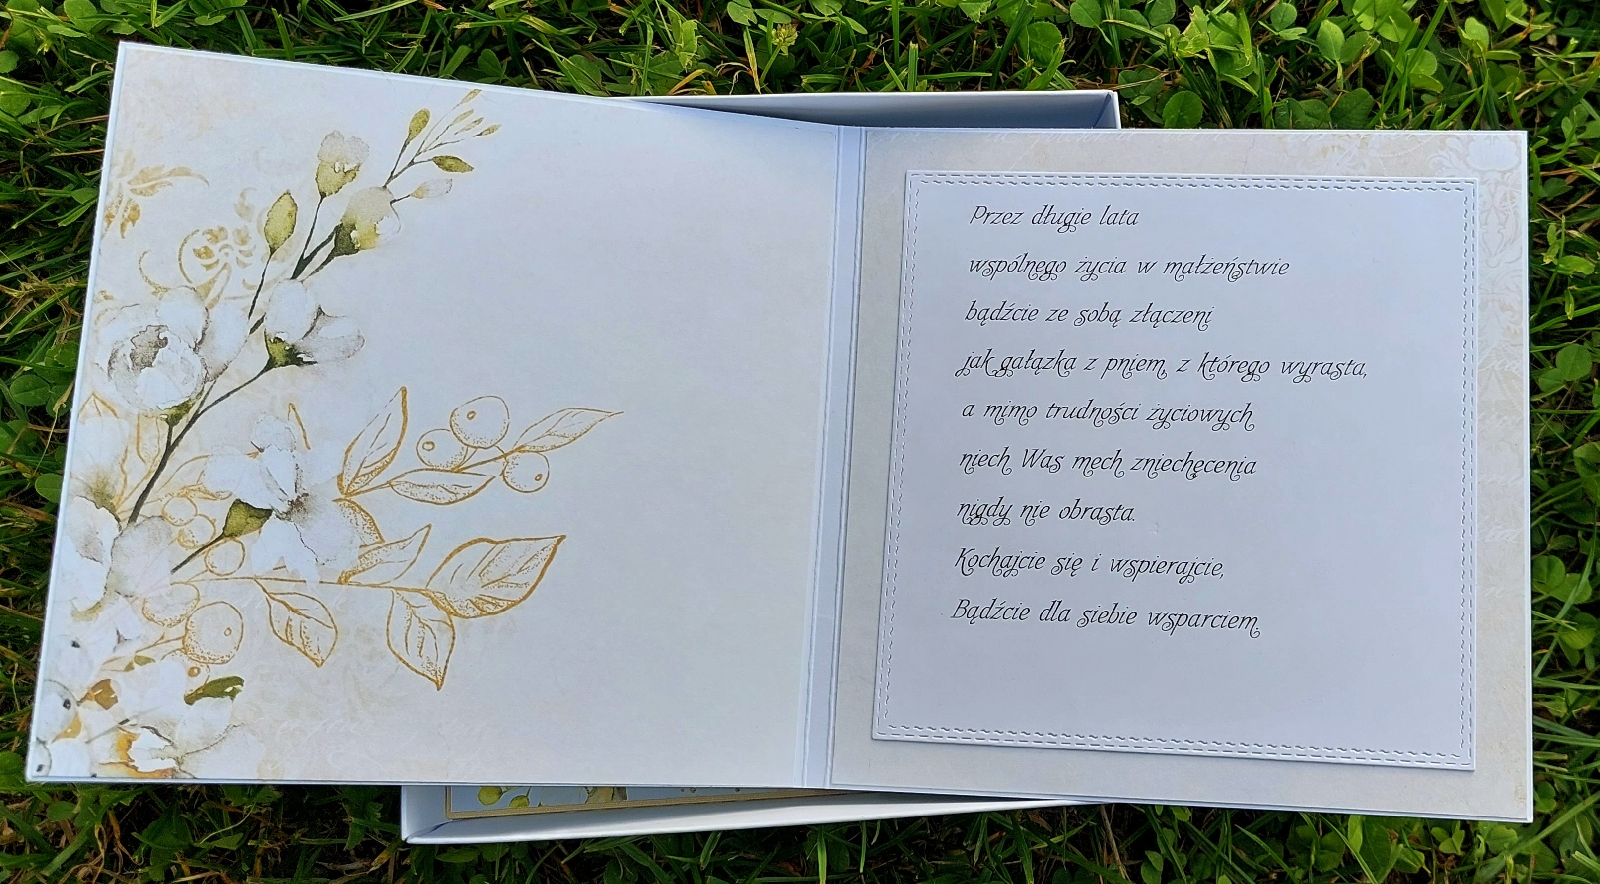 Przez długie lata
wspólnego życia w małżeństwie
bądźcie ze sobą złączeni
jak gałązka z pniem, z którego wyrasta,
a mimo trudności życiowych
niech Was mech zniechęcenia
nigdy nie obrasta.
Kochajcie się i wspierajcie,
Bądźcie dla siebie wsparciem.